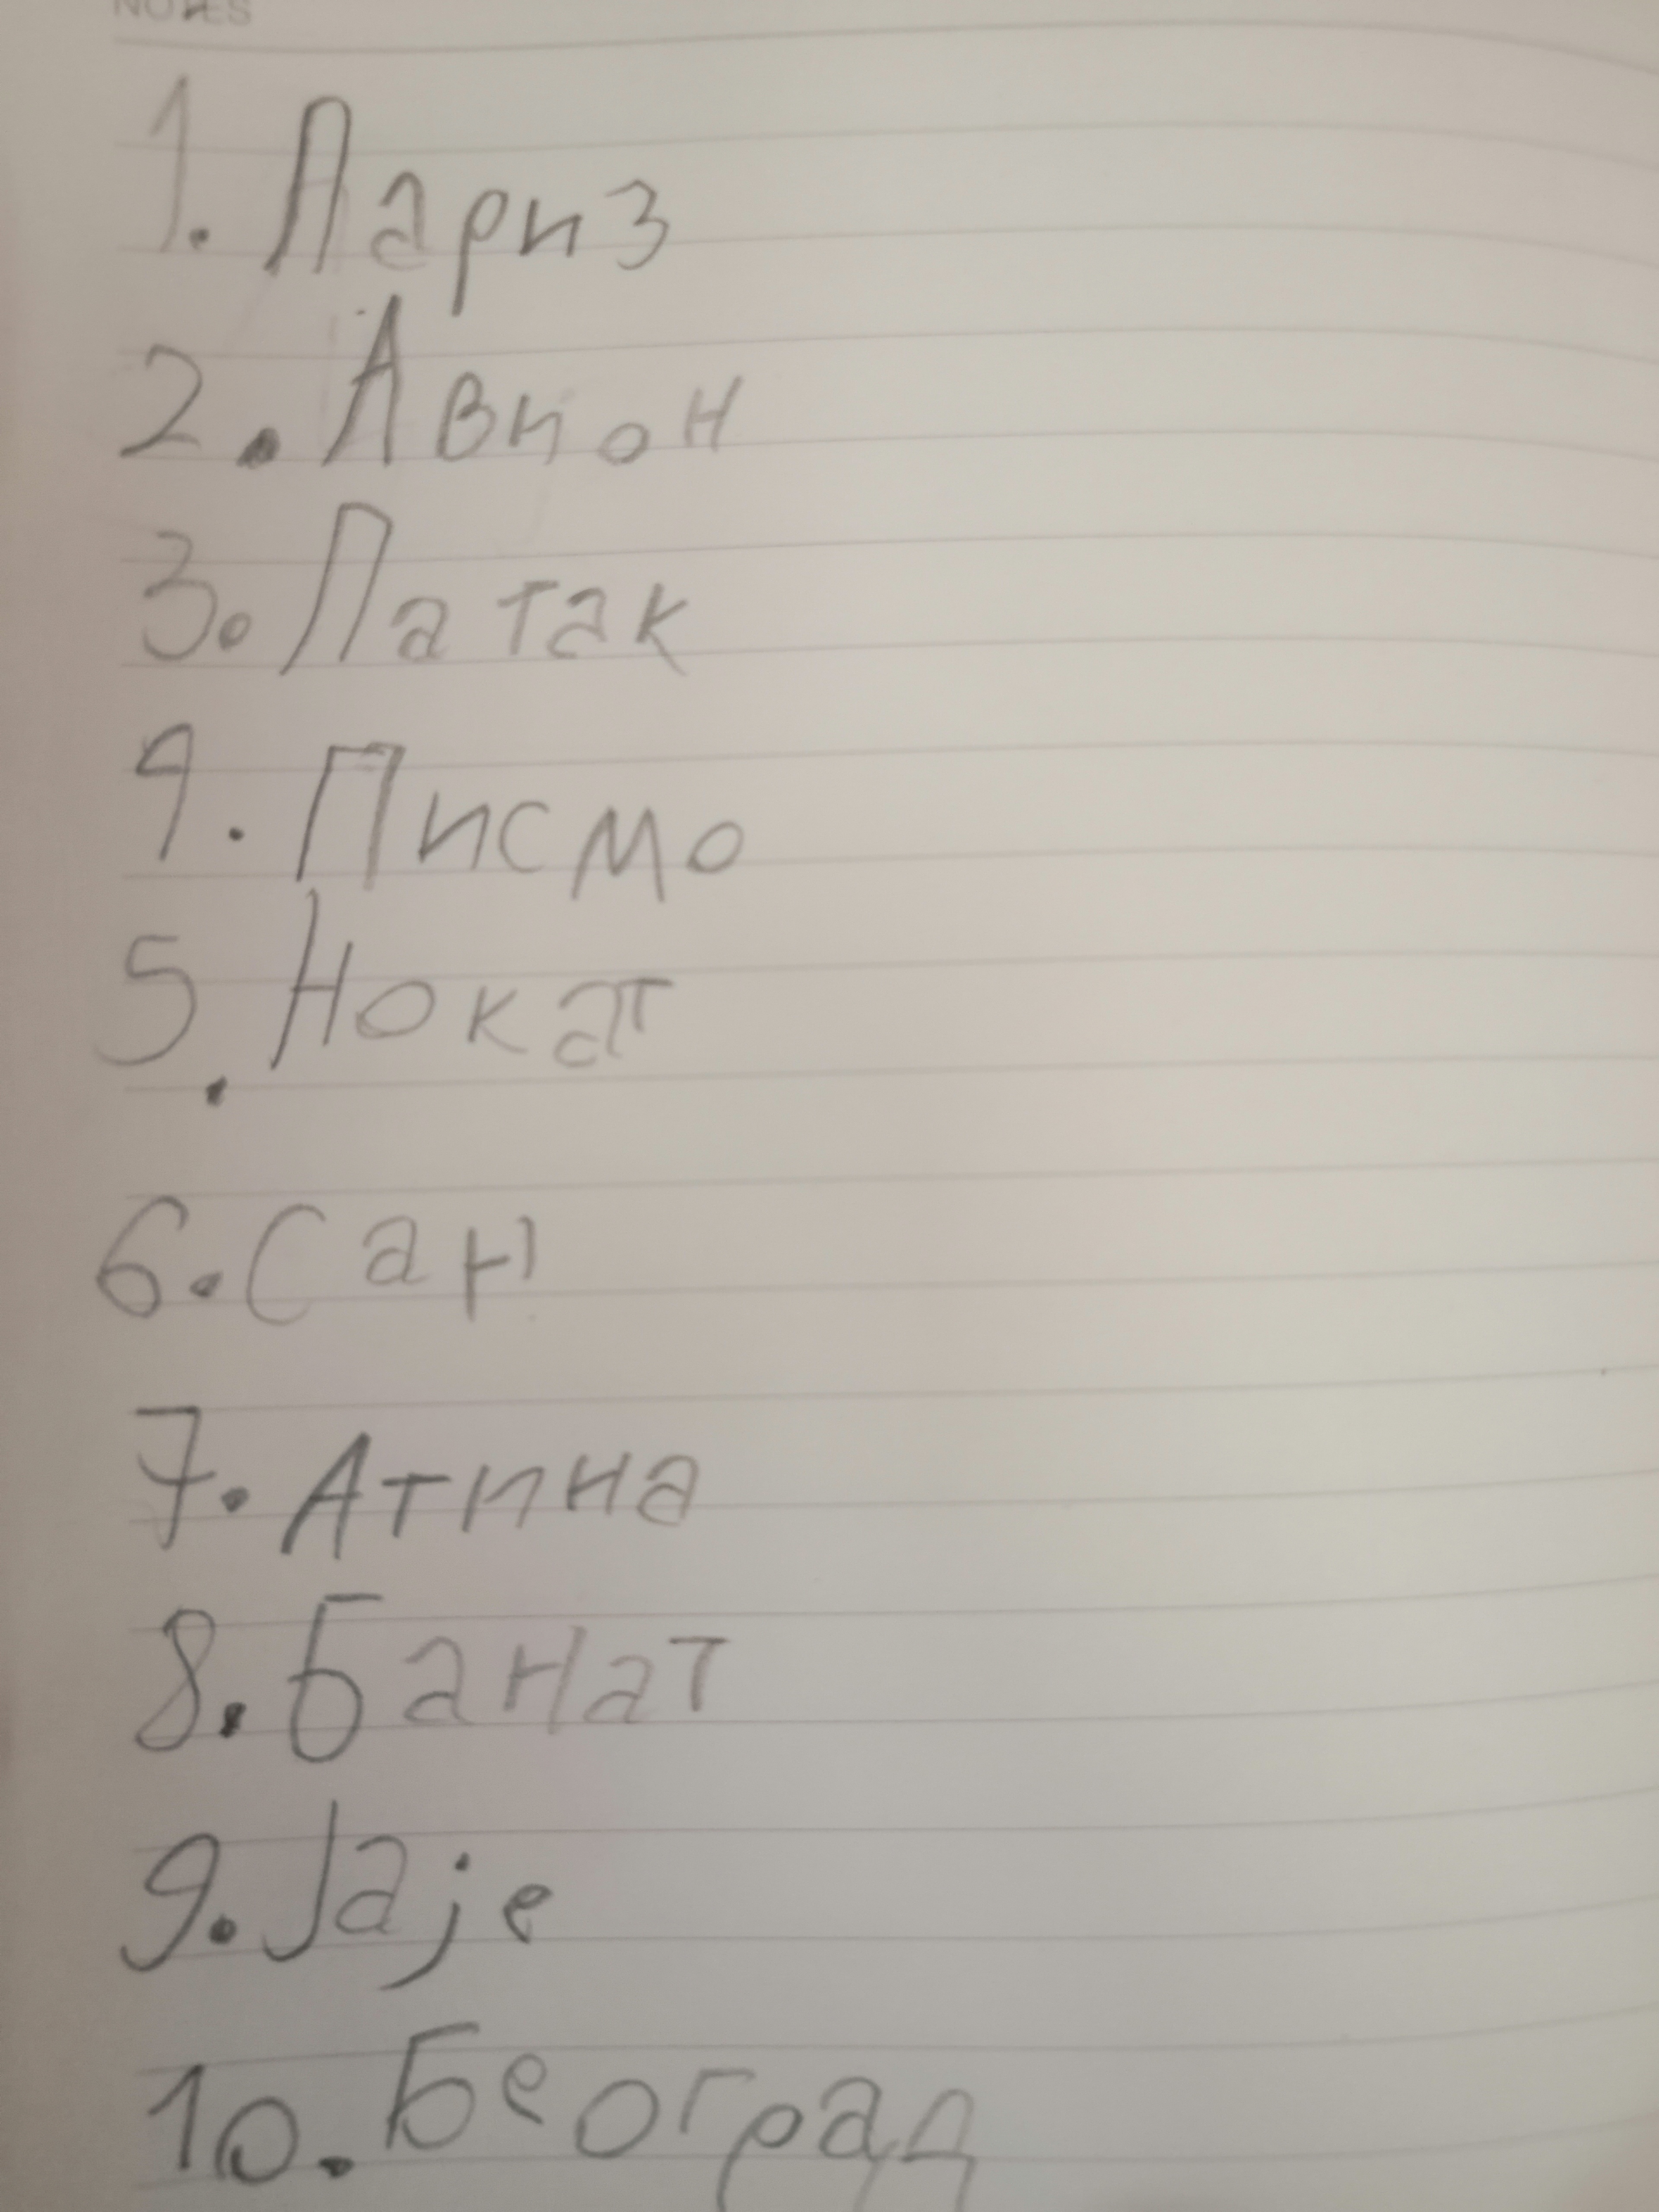 NOTES
1. Париз
2. Авион
3. Патак
4. Писмо
5. Нокат
6. Сан
7. Атина
8. Банат
9. Јаје
10. Београд